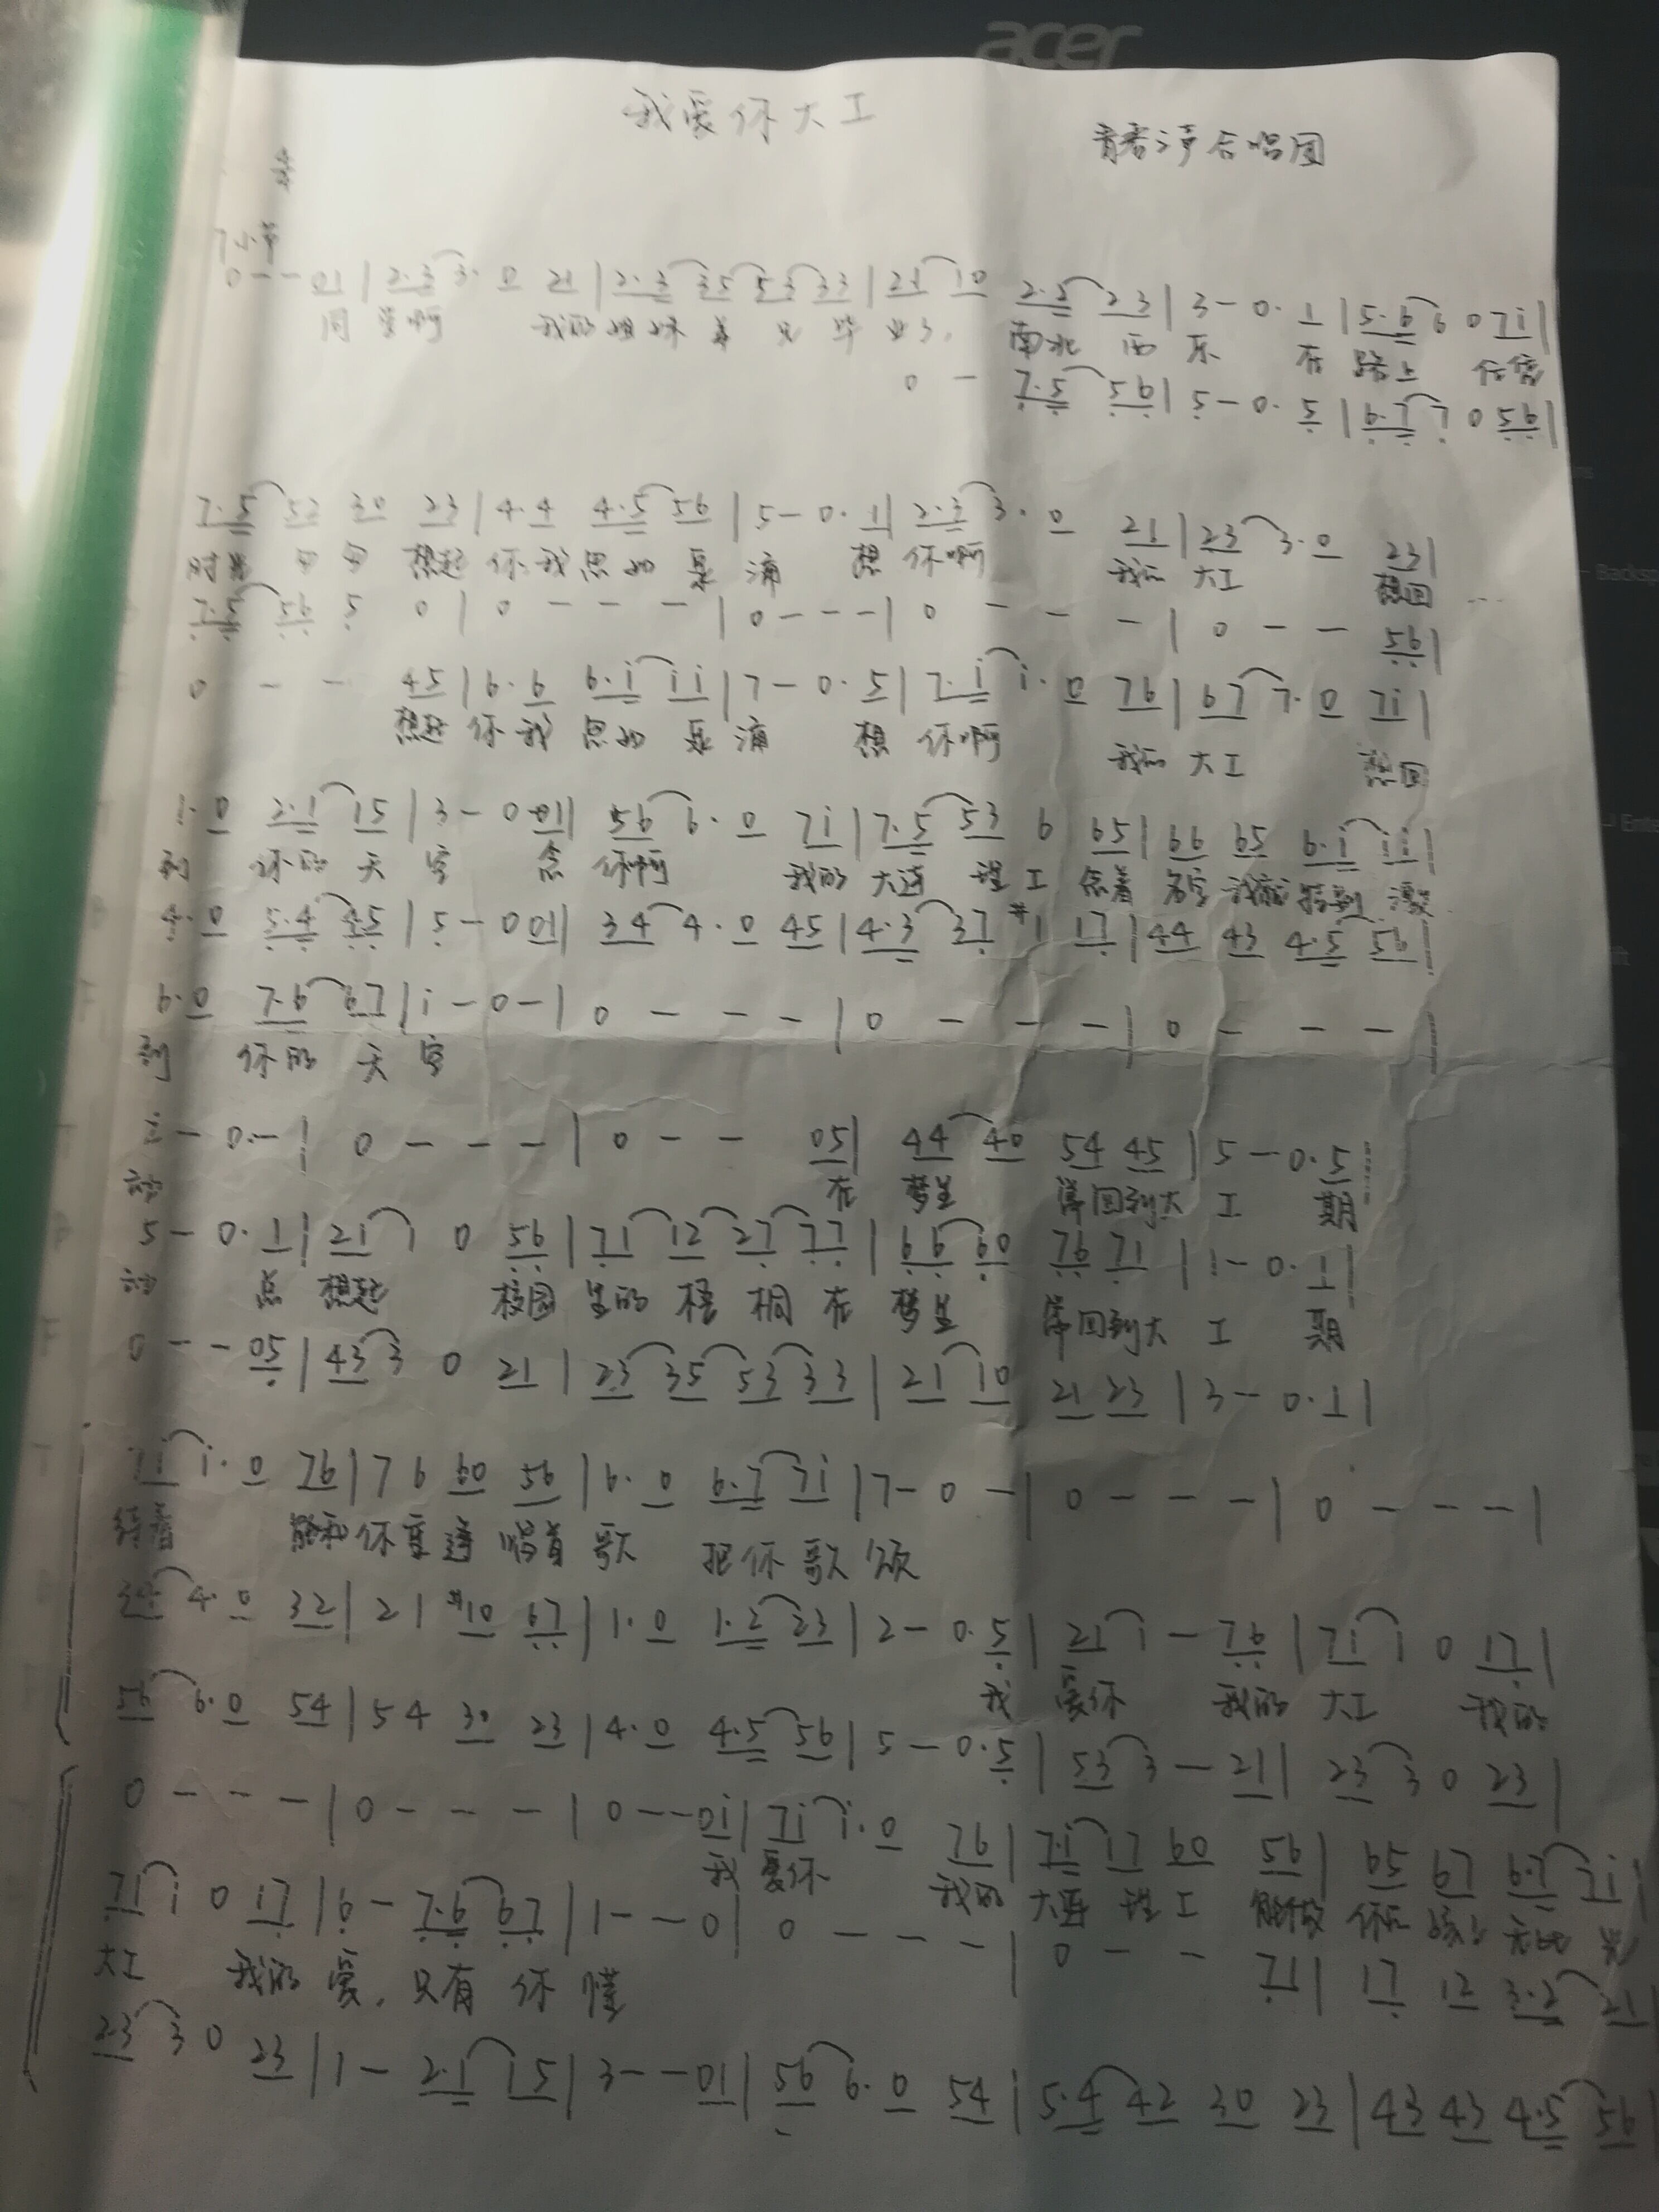 acer
我爱你大工
青春之声合唱团
4/4
7小节
0 - - 01 | 2·3 3· 0 21 | 2·3 35 53 33 | 21 10 2·2 23 | 3 - 0· 1 | 5·6 6 0 7i |
同学啊 我的姐妹弟兄毕业了, 南北西东 在路上
0 - 7·5 56 | 5 - 0· 5 | 6·7 7 0 56 |
7·5 52 30 23 | 4·4 4·5 56 | 5 - 0· 1 | 2·3 3· 0 21 | 23 3·0 23 |
时 想起 你我思如泉涌 想你啊 我的大工 想回
7·5 56 5 0 | 0 - - - | 0 - - - | 0 - - - | 0 - - 56 |
0 - - 45 | 6·6 6·i ii | 7 - 0· 5 | 7·i i· 0 76 | 67 7·0 7i |
想起 你我思如泉涌 想你啊 我的大工 想回
1·0 2·1 15 | 3 - 0 01 | 56 6·0 7i | 7·5 53 6 65 | 66 65 6·i ii |
到 你的天空 念你啊 我的大连理工 念着名字我就特别
4·0 5·4 45 | 5 - 0 01 | 34 4·0 45 | 4·3 37 #1 17 | 44 43 4·5 56 |
6·0 7·6 67 | i - 0 - | 0 - - - | 0 - - - | 0 - - -
到 你的天空
i - 0·- | 0 - - - | 0 - - 05 | 44 40 54 45 | 5 - 0·5
动 在梦里 常回到大工 期
5 - 0·1 | 21 1 0 56 | 71 12 27 77 | 66 60 76 71 | 1 - 0·1 |
动 总想起 校园里的梧桐在梦里 常回到大工 期
0 - - 05 | 43 3 0 21 | 23 35 53 33 | 21 10 21 23 | 3 - 0·1 |
7i i·0 76 | 7 6 60 56 | 6·0 6·7 7i | 7 - 0 - | 0 - - - | 0 - - - |
待着 能和你重逢 唱首歌 把你歌颂
34 4·0 32 | 2 1 #10 67 | 1·0 1·2 23 | 2 - 0·5 | 21 1 - 76 | 71 1 0 17 |
我爱你 我的大工 我的
56 6·0 54 | 5 4 30 23 | 4·0 4·5 56 | 5 - 0·5 | 53 3 - 21 | 23 3 0 23 |
0 - - - | 0 - - - | 0 - - 0i | 7i i·0 76 | 7·i 17 60 56 | 65 67 6·7 7i |
我爱你 我的大连理工 能做你的孩子无比光
71 1 0 17 | 6 - 7·6 67 | 1 - - 0 | 0 - - - | 0 - - 71 | 17 12 3·2 21
大工 我的爱,只有你懂
23 3 0 23 | 1 - 2·1 15 | 3 - - 01 | 56 6·0 54 | 5·4 42 30 23 | 43 43 4·5 56